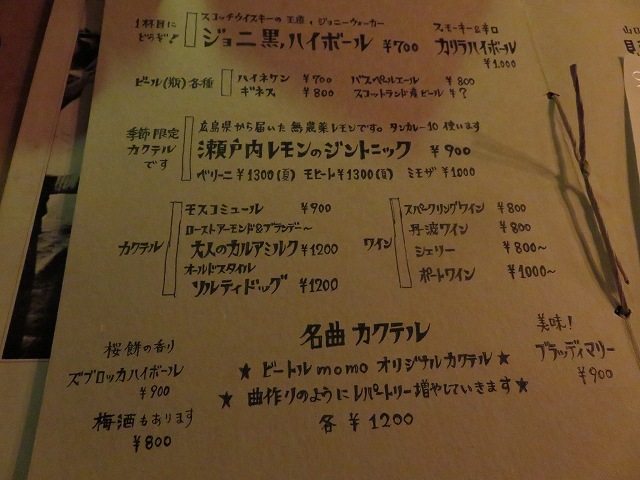 1杯目に
どうぞ!
スコッチウイスキーの王道、ジョニーウォーカー
ジョニ黒ハイボール ¥700
スモーキー&辛口
カリラハイボール
¥1,000
ビール(瓶)各種
ハイネケン ¥700
バスペールエール ¥800
ギネス ¥800
スコットランド産ビール ¥?
季節限定
カクテル
です
広島県から届いた無農薬レモンです。タンカレー10使います
瀬戸内レモンのジントニック ¥900
ベリーニ ¥1300(夏) モヒート ¥1300(夏) ミモザ ¥1000
カクテル
モスコミュール ¥900
ローストアーモンド&ブランデー〜
大人のカルアミルク ¥1200
オールドスタイル
ソルティドッグ ¥1200
ワイン
スパークリングワイン ¥800
丹波ワイン ¥800
シェリー ¥800〜
ポートワイン ¥1000〜
桜餅の香り
ズブロッカハイボール
¥900
梅酒もあります
¥800
名曲カクテル
★ ビートルmomo オリジナルカクテル ★
★ 曲作りのようにレパートリー増やしていきます ★
各 ¥1200
美味!
ブラッディマリー
¥900
山口